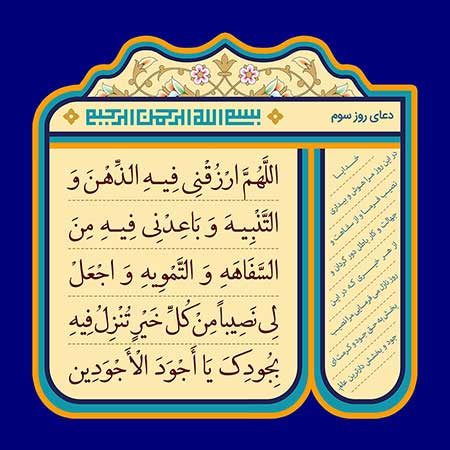 دعای روز سوم
بسم الله الرحمن الرحیم
اللَّهُمَّ ارْزُقْنِی فِیهِ الذِّهْنَ وَ
التَّنْبِیهَ وَ بَاعِدْنِی فِیهِ مِنَ
السَّفَاهَهِ وَ التَّمْوِیهِ وَ اجْعَلْ
لِی نَصِیباً مِنْ کُلِّ خَیْرٍ تُنْزِلُ فِیهِ
بِجُودِکَ یَا أَجْوَدَ الْأَجْوَدِین
خدایا
در این روز مرا هوش و بیداری
نصیب فرما و از سفاهت و
جهالت و کار باطل دور گردان و
از هر خیری که در این
روز نازل می فرمایی مرا نصیب
بخش به حق جود و کرمت ای
جود و بخشش دارترین عالم